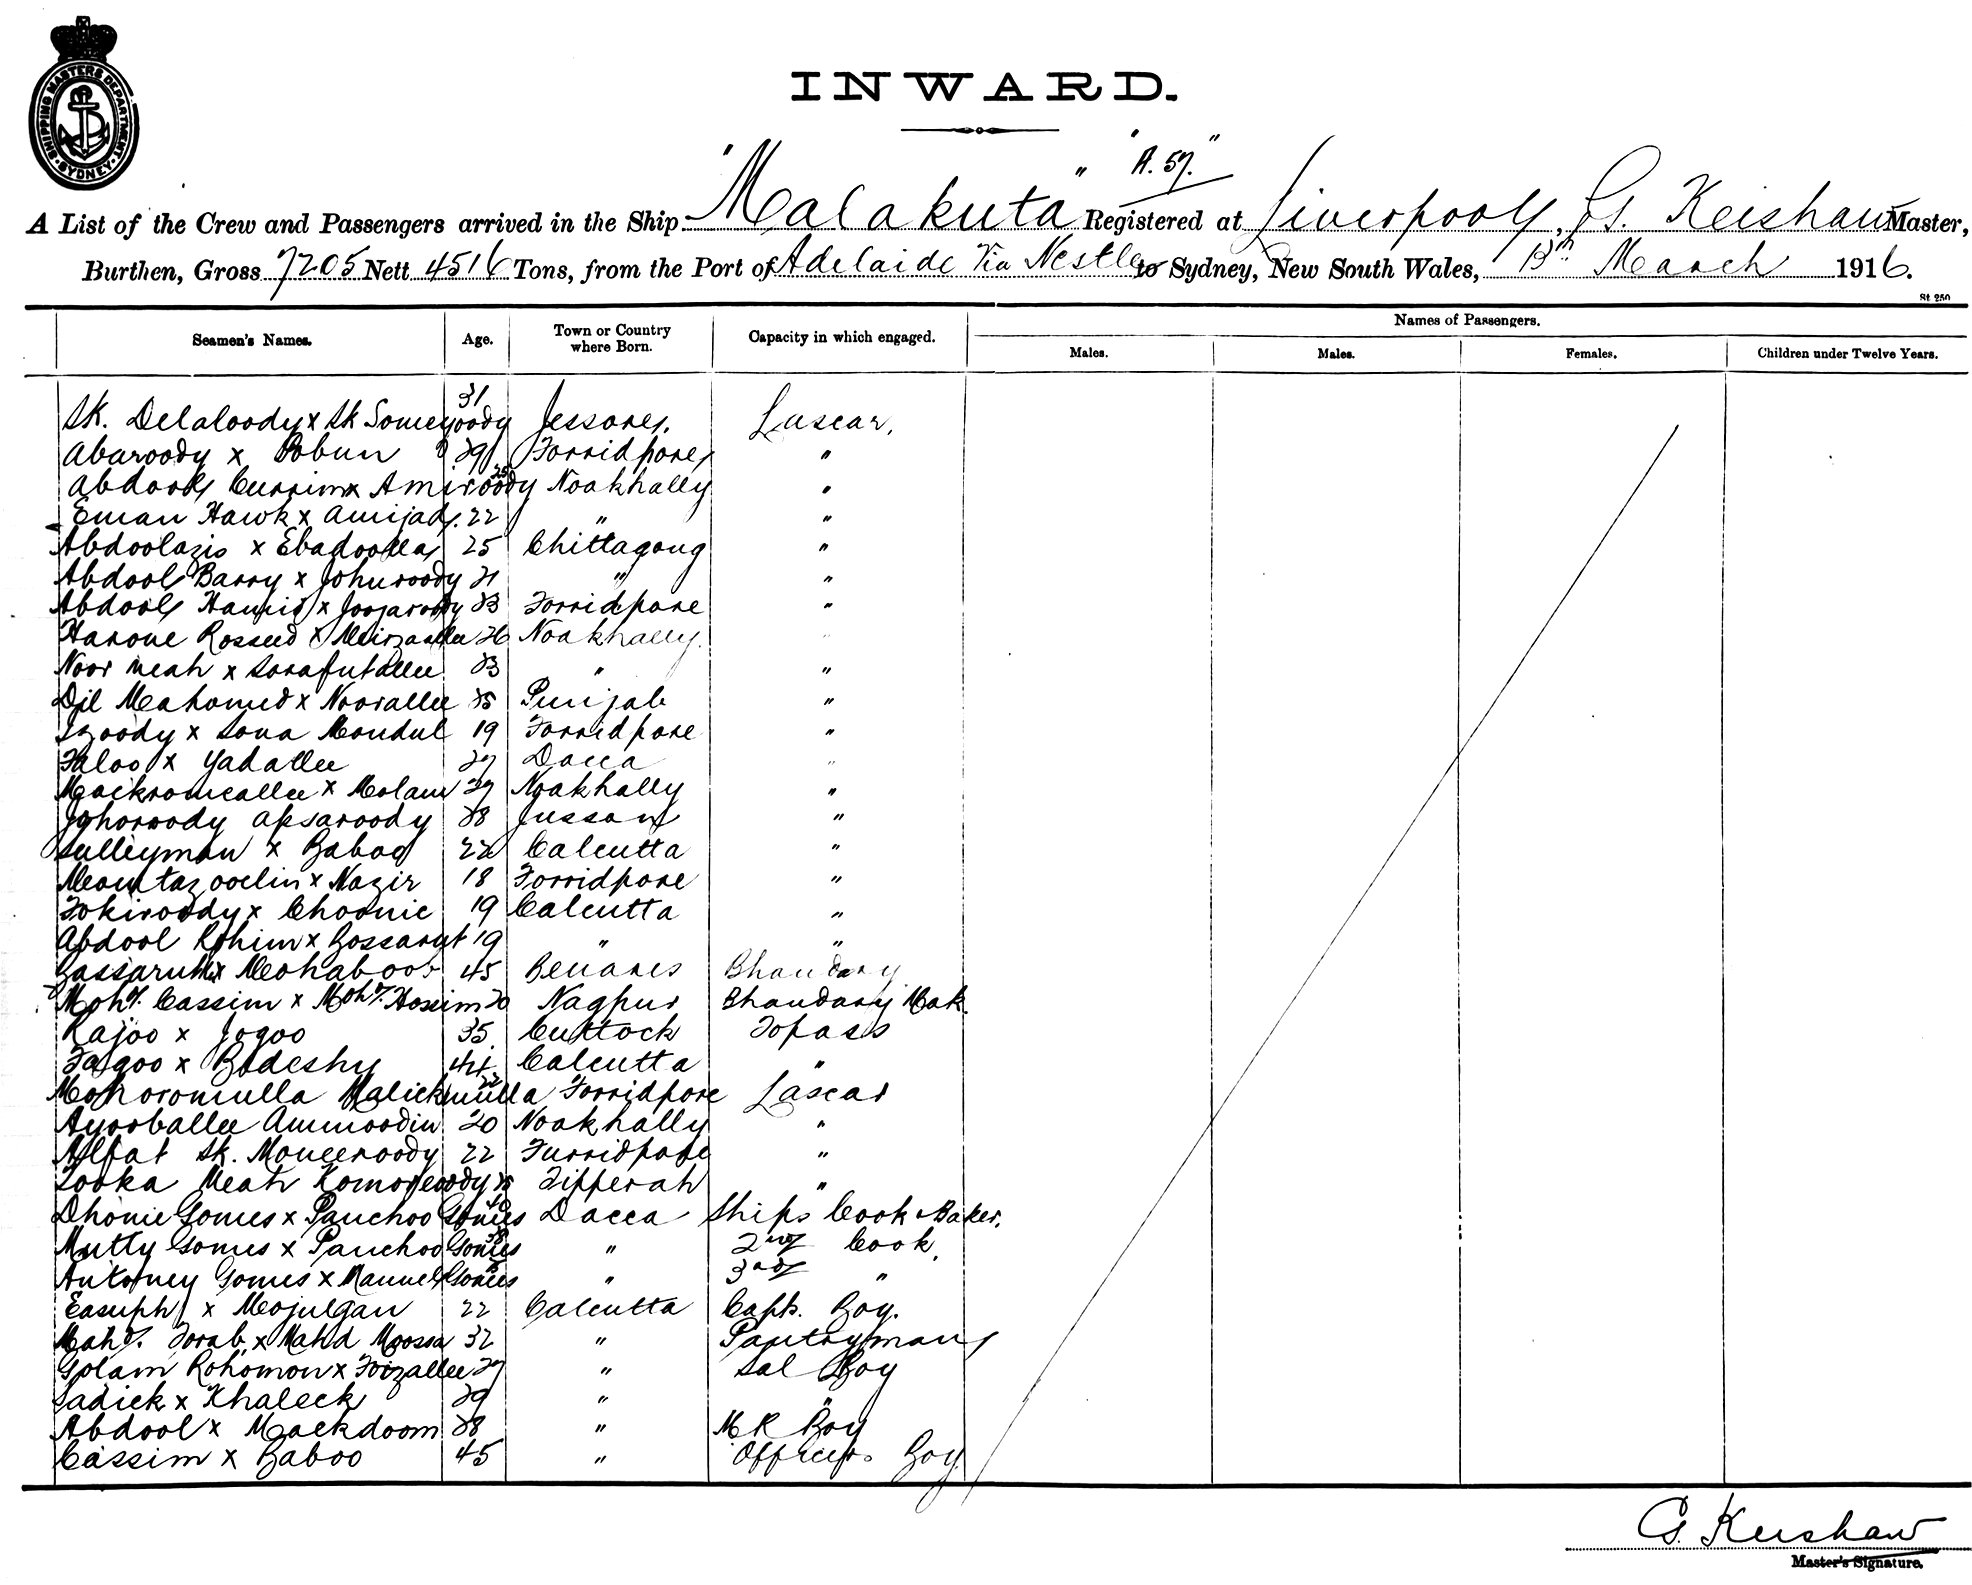 SHIPPING MASTERS DEPARTMENT
SYDNEY
INWARD.
"A. 57."
A List of the Crew and Passengers arrived in the Ship "Malakuta" Registered at Liverpool, G. Kershaw Master,
Burthen, Gross 7205 Nett 4516 Tons, from the Port of Adelaide Via Nestle to Sydney, New South Wales, 13th March 1916.
St 250
Names of Passengers.
Seamen's Names. Age. Town or Country where Born. Capacity in which engaged. Males. Males. Females. Children under Twelve Years.
Sk. Delaloody x Sk Someyoody 31 Jessore. Lascar.
Abaroody x Bobun 29 Forridpore "
Abdool Currim x Amiroody 25 Noakhally "
Eman Hawk x Amijad. 22 " "
Abdoolazis x Ebadoolla 25 Chittagong "
Abdool Barry x Johuroody 21 " "
Abdool Hamid x 23 Forridpore "
Harone Rosseed x Meirzaallee 26 Noakhally. "
Noor Meah x Sorafutallee 23 " "
Dil Mahomed x Noorallee 25 Punjab "
Izoody x Sona Mondul 19 Forridpore "
Faloo x Yadallee 27 Dacca "
x Molam 27 Noakhally "
Johoroody Apsaroody 28 "
Sulleyman x Baboo 22 Calcutta "
Momtazoodin x Nazir 18 Forridpore "
Fokiroody x Choonie 19 Calcutta "
Abdool Rohim x Bossarut 19 " "
x Mohaboob 45 Benares Bhandary
Mohd. Cassim x Mohd. Hossim 20 Nagpur Bhandary Mak.
Rajoo x Jogoo 35 Cuttock Topass
Fagoo x Bodeshy 44 Calcutta "
Mohoromulla Malickmulla 22 Forridpore Lascar
Ayooballee Ammoodin 20 Noakhally "
Alfat Sk. Moneeroody 22 Furridpore "
Sooka Meah 25 Tipperah "
Dhonie Gomes x Panchoo Gomes 40 Dacca Ships Cook & Baker.
Mutty Gomes x Panchoo Gomes 38 " 2nd Cook.
Antoney Gomes x Manuel Gomes " 3rd "
Easuph x Mojulgan 22 Calcutta Capts. Boy.
Mohd. Torab. x Mahd Moossa 32 " Pantryman
Golam Rohomon x Foizallee 27 " Sal Boy
Sadick x Khaleck 29 " "
Abdool x Mackdoom 28 " M R Boy
Cassim x Baboo 45 " Officers Boy
G. Kershaw
Master's Signature.